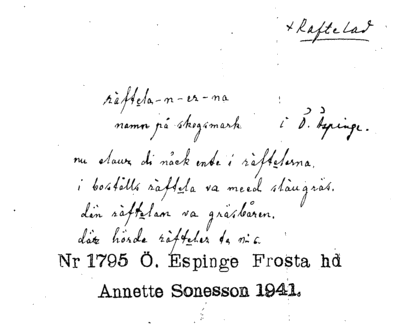 + Raftelad
räftela-n-er-na
namn på skogsmark i Ö. Espinge.
nu staur di nåck ente i räftelerna.
i boställs räftela va meed stäugräs.
dän räftelan va gräsbåren.
där hörde räfteler te
Nr 1795 Ö. Espinge Frosta hd
Annette Sonesson 1941.